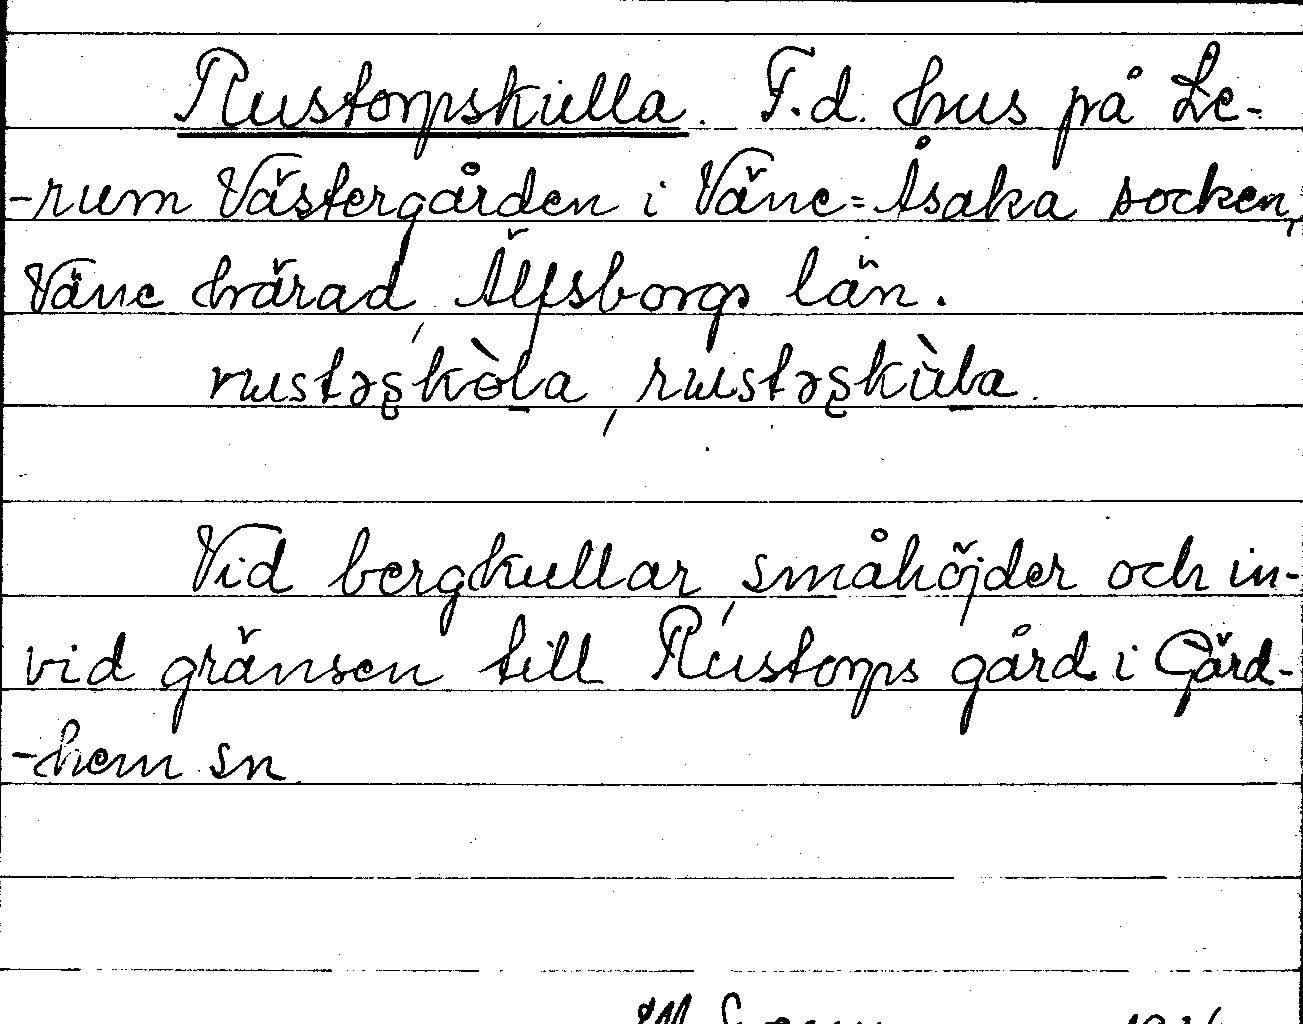 Rustorpskulla. F.d. hus på Le-
-rum Västergården i Väne=Åsaka socken,
Väne härad, Älfsborgs län.
rustəʂkòla, rustəʂkùla.
Vid bergkullar, småhöjder och in-
vid gränsen till Rustorps gård i Gärd-
-hem sn